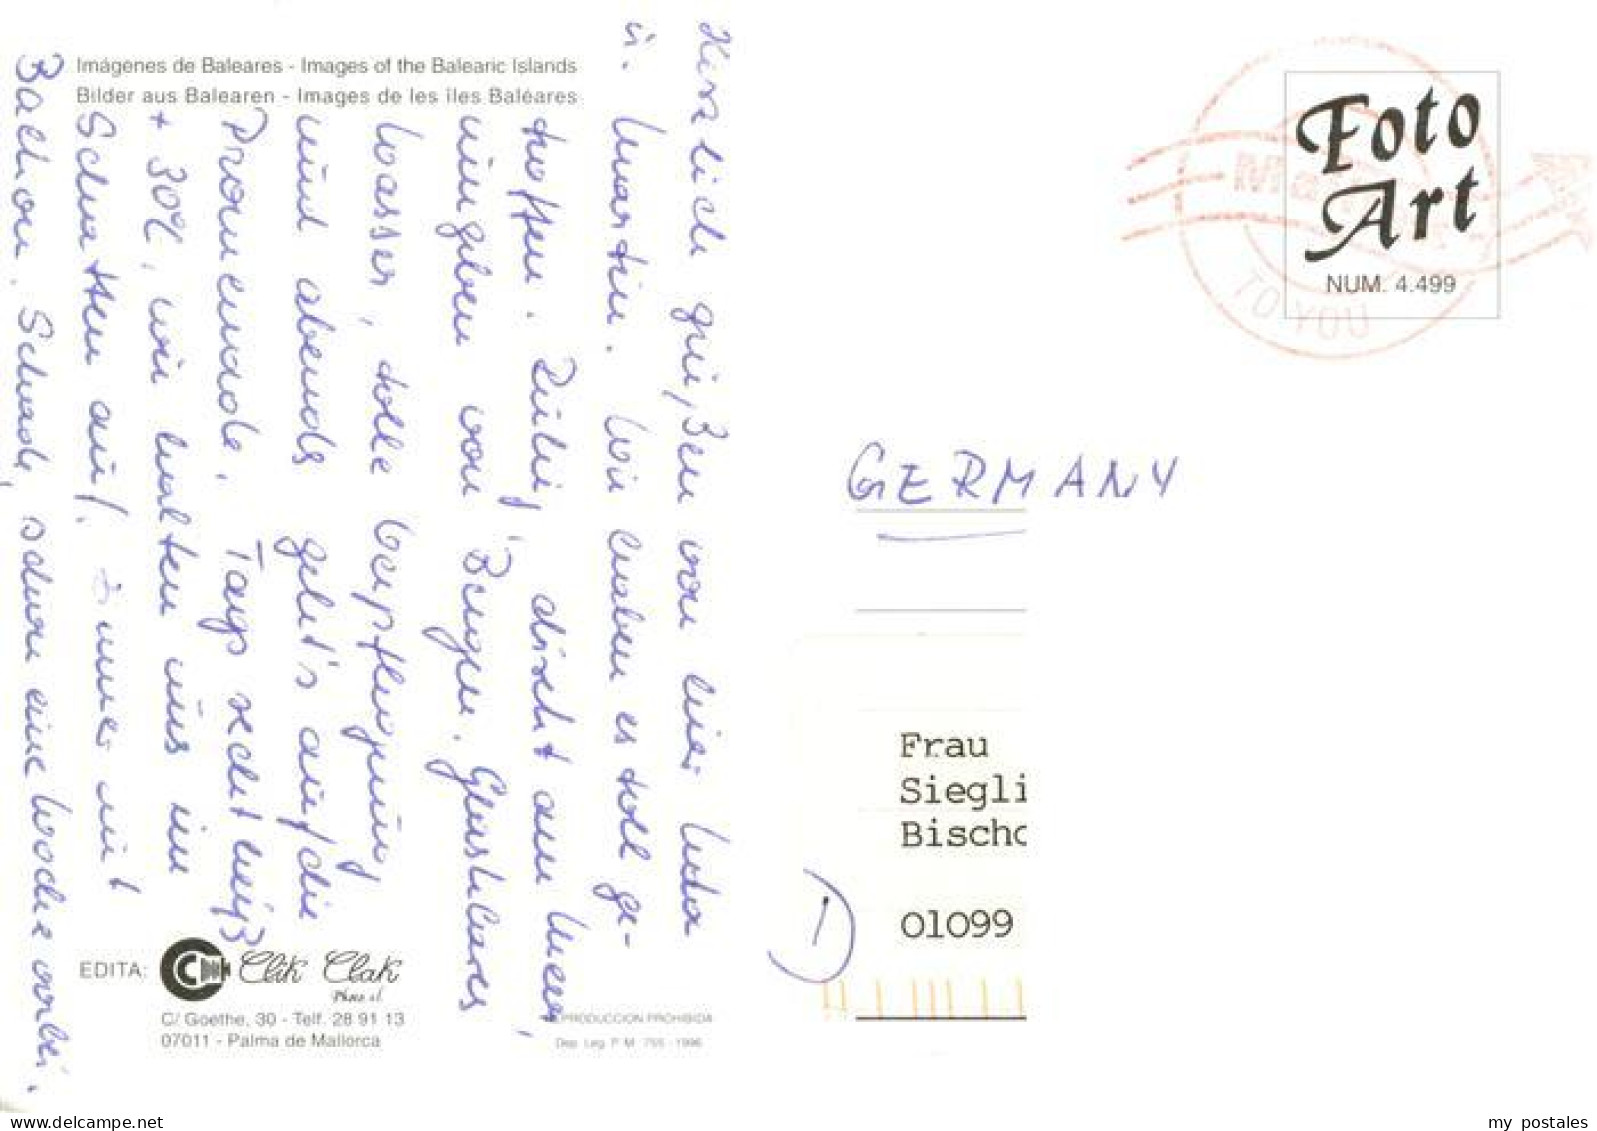 Imágenes de Baleares - Images of the Balearic Islands
Bilder aus Balearen - Images de les îles Baléares
Herzliche Grüße von hier Jutta
u. Martin. Wir haben es toll ge-
troffen. Ruhig, direkt am Meer,
umgeben von Bergen. Glasklares
Wasser, tolle Verpflegung
und abends geht's auf die
Promenade. Tags recht heiß
+ 30°C, wir halten uns im
Schatten auf. Zimmer mit
Balkon. Schade, schon eine Woche vorbei.
EDITA:
Clik Clak
Photo sl
C/ Goethe, 30 - Telf. 28 91 13
07011 - Palma de Mallorca
REPRODUCCION PROHIBIDA
Dep. Leg. P M 755 - 1996
Foto
Art
NUM. 4.499
TO YOU
GERMANY
Frau
Siegli
Bischo
01099
www.delcampe.net
my_postales